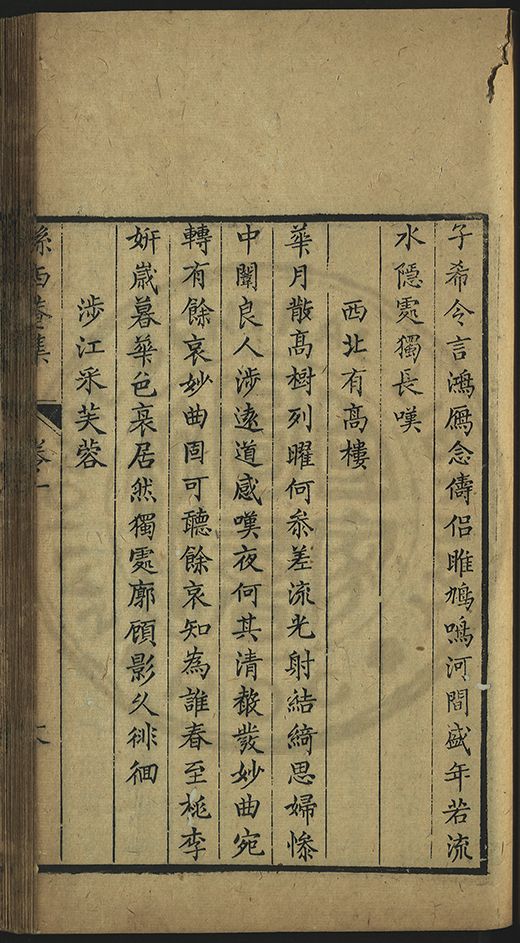 子希令言鴻鴈念儔侣雎鳩鳴河間盛年若流
水隱處獨長嘆
西北有高樓
華月散高樹列曜何叅差流光射結綺思婦慘
中闈良人涉遠道感嘆夜何其清商發妙曲宛
轉有餘哀妙曲固可聽餘哀知為誰春至桃李
妍歳暮華色衰居然獨處廓顧影久徘徊
涉江采芙蓉
孫西菴集
卷一